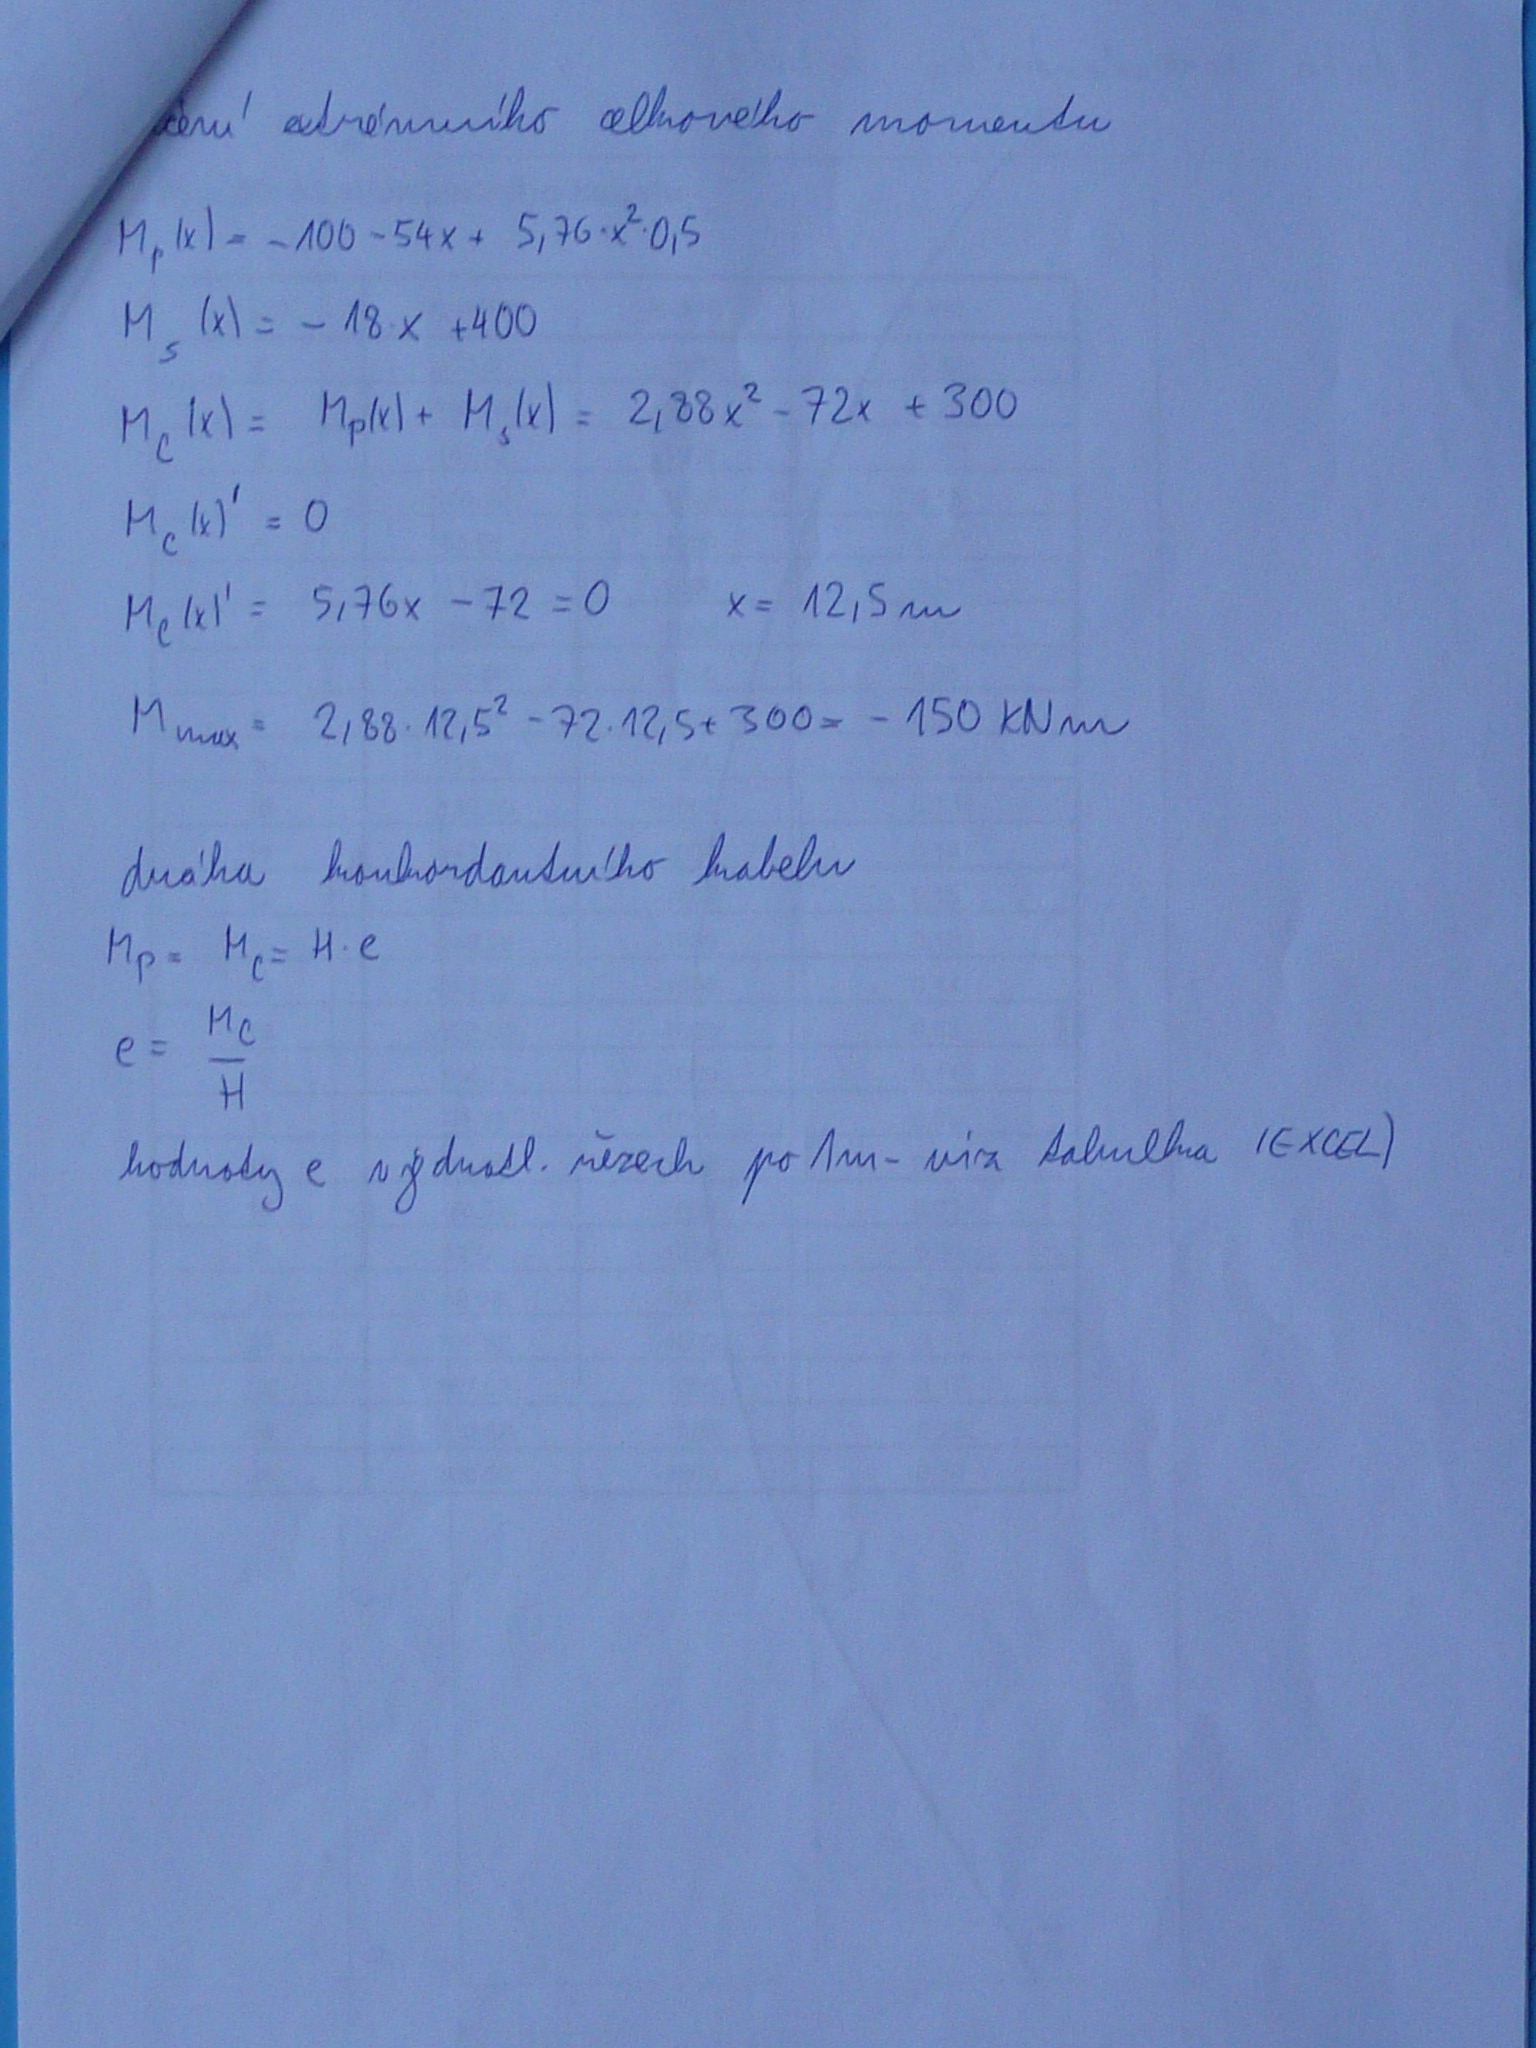 extrémního celkového momentu
Mp(x) = -100 - 54x + 5,76·x²·0,5
Ms(x) = - 18·x + 400
Mc(x) = Mp(x) + Ms(x) = 2,88x² - 72x + 300
Mc(x)' = 0
Mc(x)' = 5,76x - 72 = 0 x = 12,5 m
Mmax = 2,88·12,5² - 72·12,5 + 300 = - 150 kNm
dráha konkordantního kabelu
Mp = Mc = H·e
e = Mc
H
hodnoty e v jednotl. řezech po 1m - viz tabulka (EXCEL)